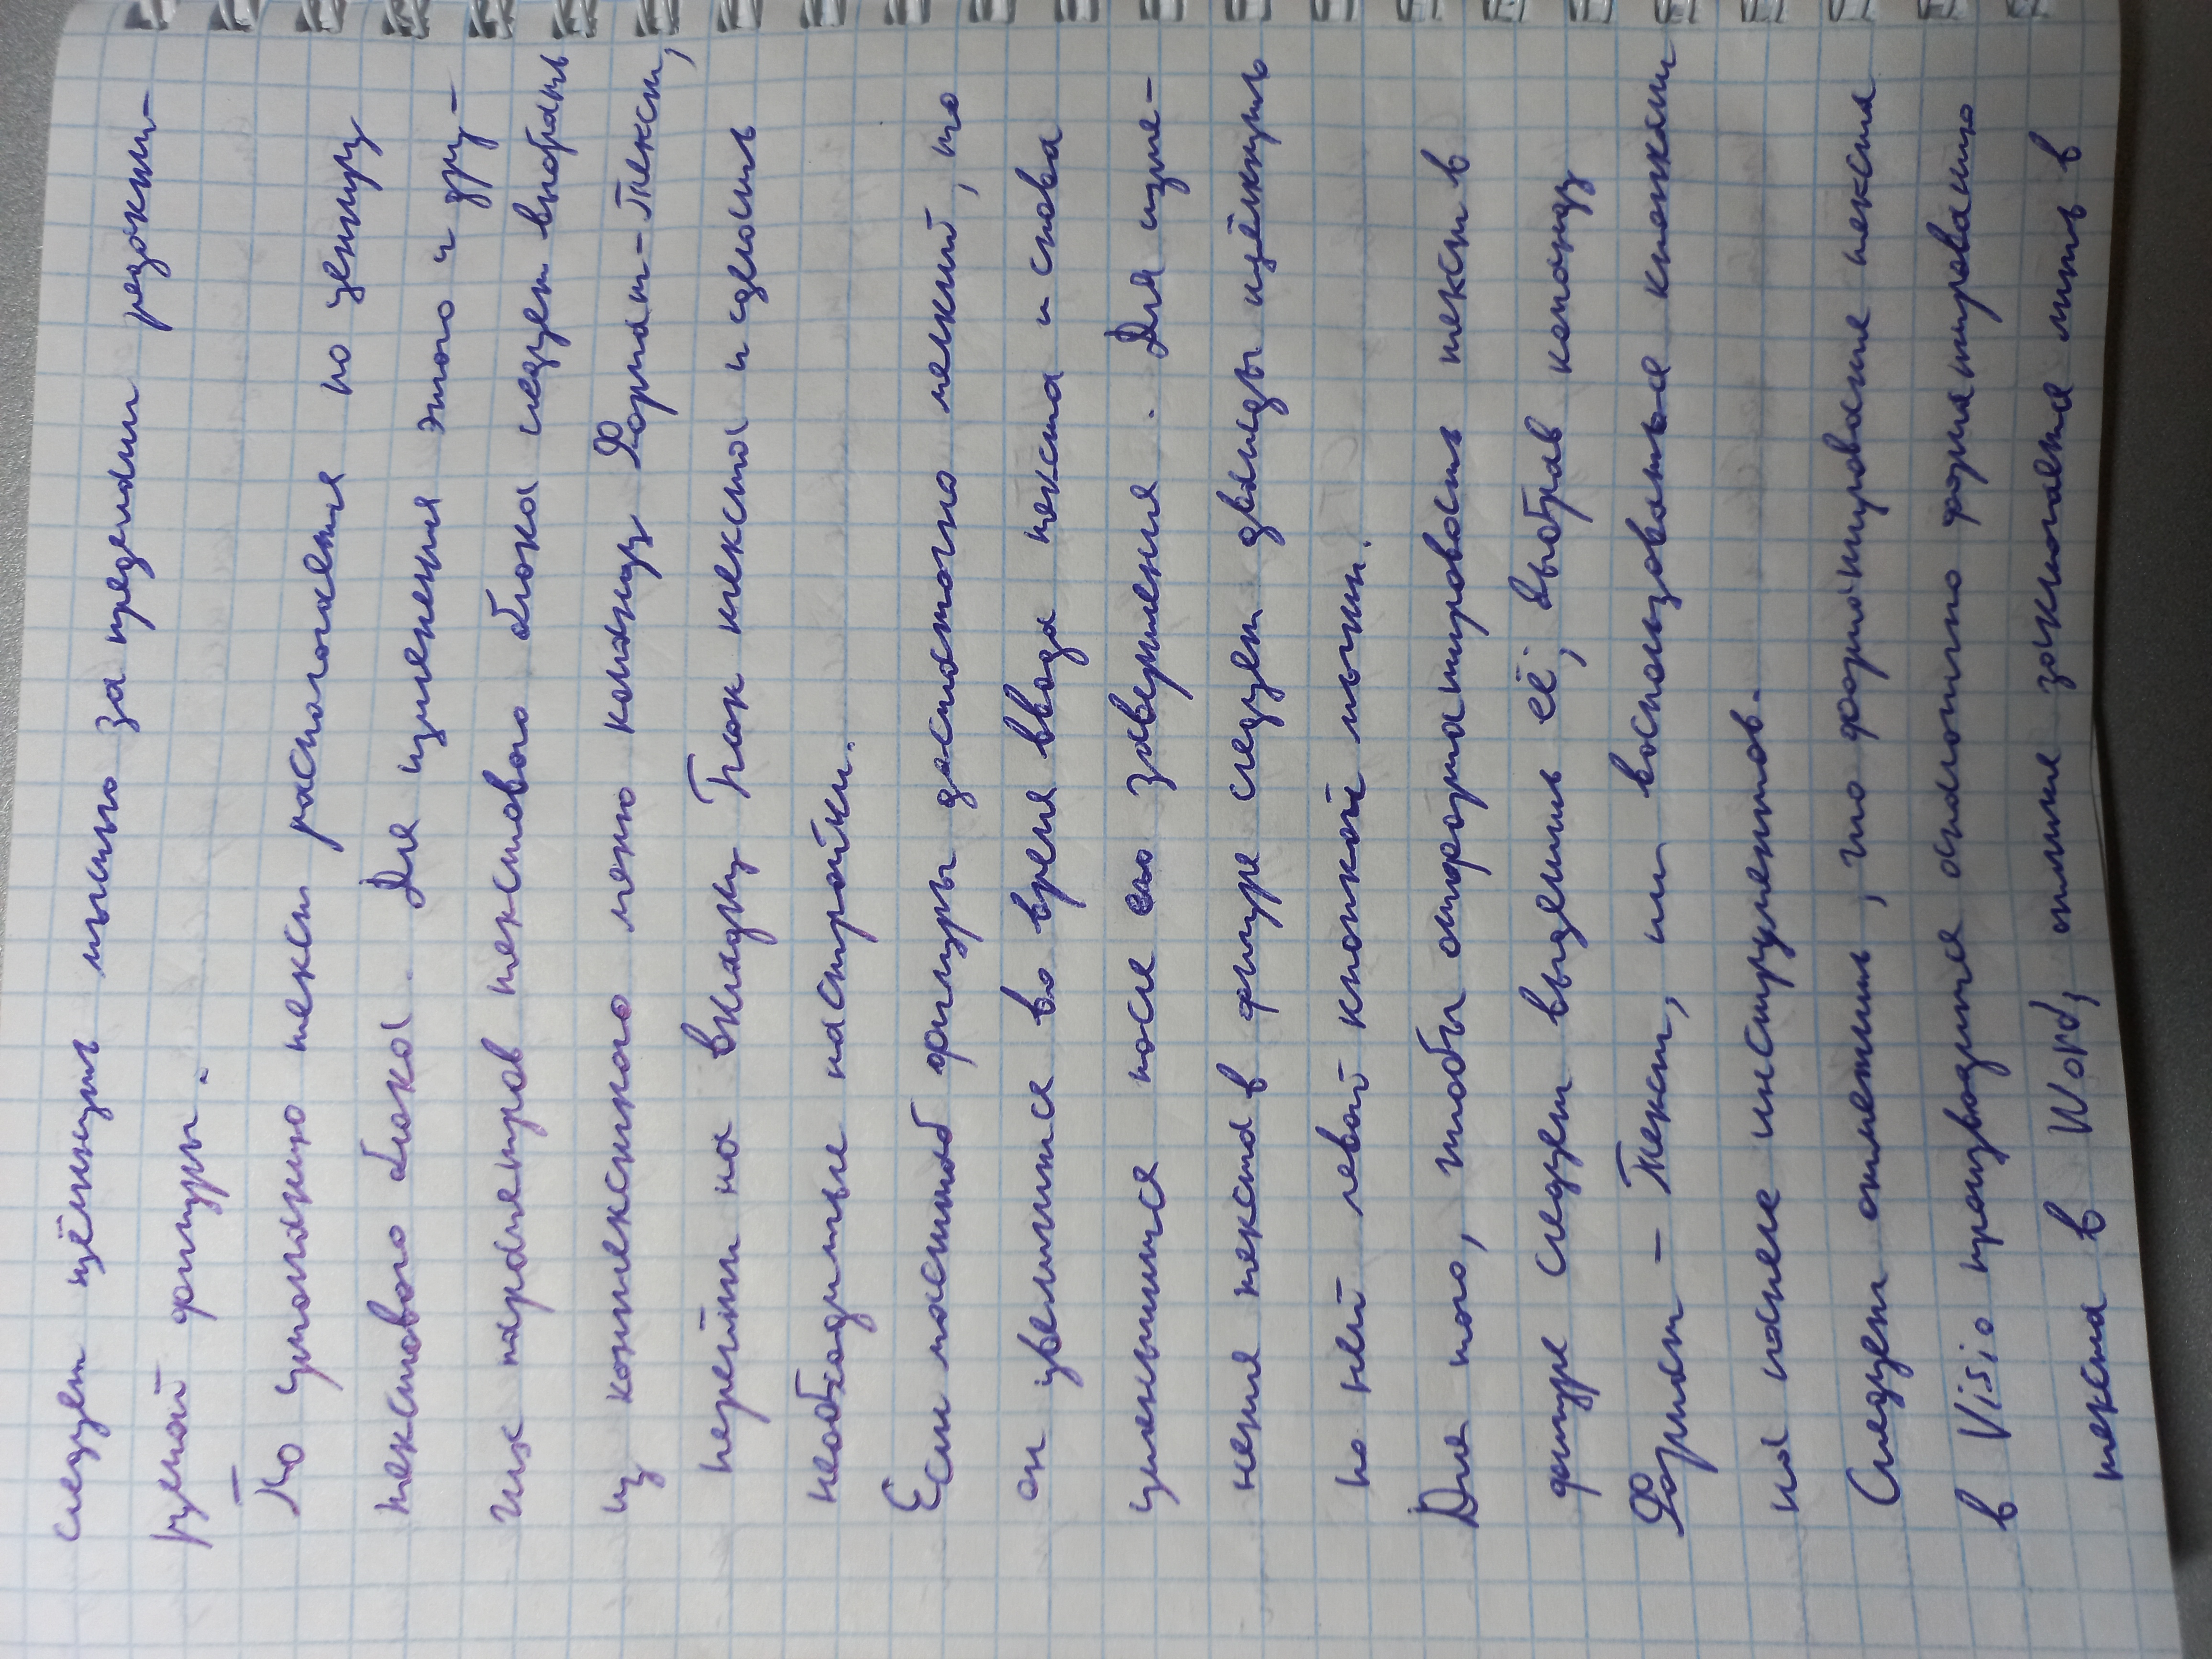 следует щёлкнуть мышью за пределами редакти-
руемой фигуры.
По умолчанию текст располагается по центру
текстового блока. Для изменения этого и дру-
гих параметров текстового блока следует выбрать
из контекстного меню команду Формат-Текст,
перейти на вкладку Блок текста и сделать
необходимые настройки.
Если масштаб фигуры достаточно мелкий, то
он увеличится во время ввода текста и снова
уменьшится после его завершения. Для изме-
нения текста в фигуре следует дважды щёлкнуть
по ней левой кнопкой мыши.
Для того, чтобы отформатировать текст в
фигуре следует выделить её, выбрав команду
Формат - Текст, или воспользоваться кнопками
на панели инструментов.
Следует отметить, что форматирование текста
в Visio производится аналогично форматированию
текста в Word, отличие заключается лишь в